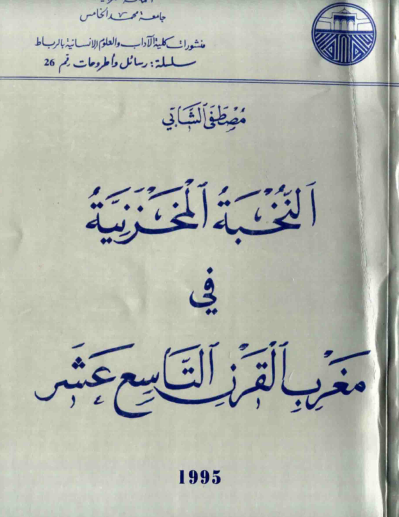 جامعة محمد الخامس
منشورات كلية الآداب والعلوم الإنسانية بالرباط
سلسلة: رسائل وأطروحات رقم 26
مصطفى الشابي
النخبة المخزنية
في
مغرب القرن التاسع عشر
1995